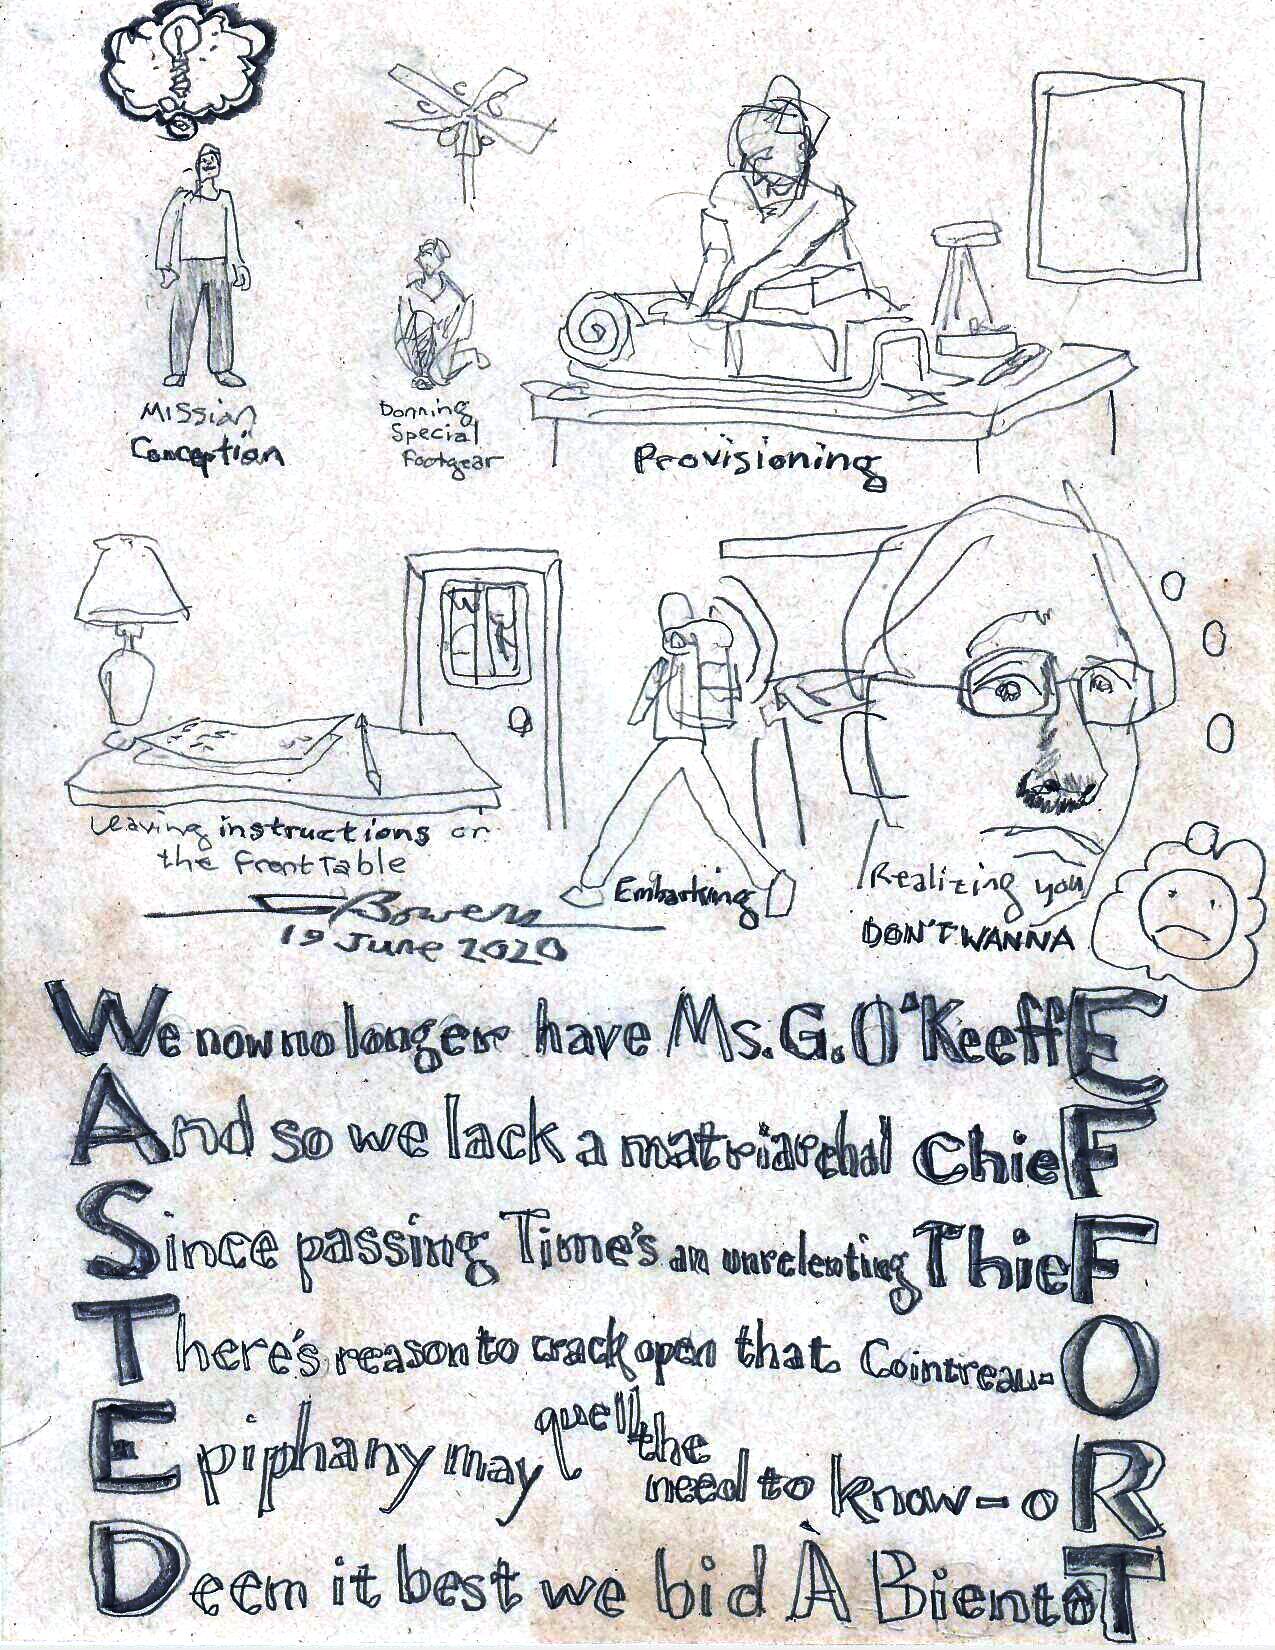 Mission
Conception
Donning
Special
Footgear
Provisioning
Leaving instructions on
the Front Table
Embarking
Realizing you
DON'T WANNA
Bowers
19 June 2020
We now no longer have Ms. G. O'KeeffE
And so we lack a matriarchal ChieF
Since passing Time's an unrelenting ThieF
There's reason to crack open that Cointreau-O
Epiphany may quell the need to know-oR
Deem it best we bid À BientôT